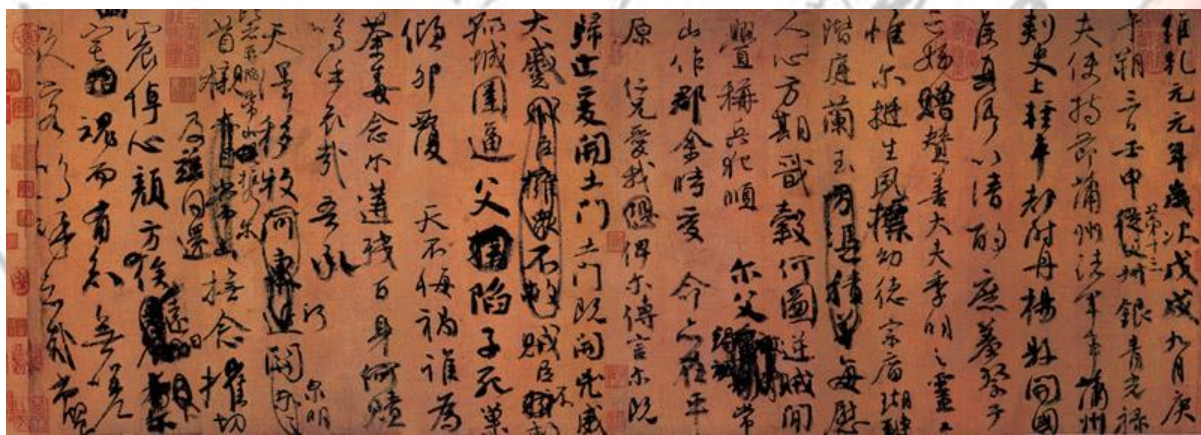 維乾元元年歲次戊戌九月庚
午朔三日壬申第十三從父銀青光祿
夫使持節蒲州諸軍事蒲州
刺史上輕車都尉丹楊縣開國
侯真卿以清酌庶羞祭于
亡姪贈贊善大夫季明之靈曰
惟爾挺生夙標幼德宗廟瑚璉
階庭蘭玉方憑積善每慰
人心方期戩穀何圖逆賊閒
釁稱兵犯順爾父常
山作郡余時受命亦在平
原仁兄愛我俾爾傳言爾既
歸止爰開土門土門既開凶威
大蹙賊臣擁眾不救賊臣不
孤城圍逼父陷子死巢
傾卵覆天不悔禍誰為
荼毒念爾遘殘百身何贖
嗚呼哀哉吾承
天澤移牧河東近泉明
比者再陷常山攜爾
首櫬及茲同還亦自常山撫念摧切
震悼心顏方俟遠日
宅魂而有知無嗟
久客嗚呼哀哉尚饗